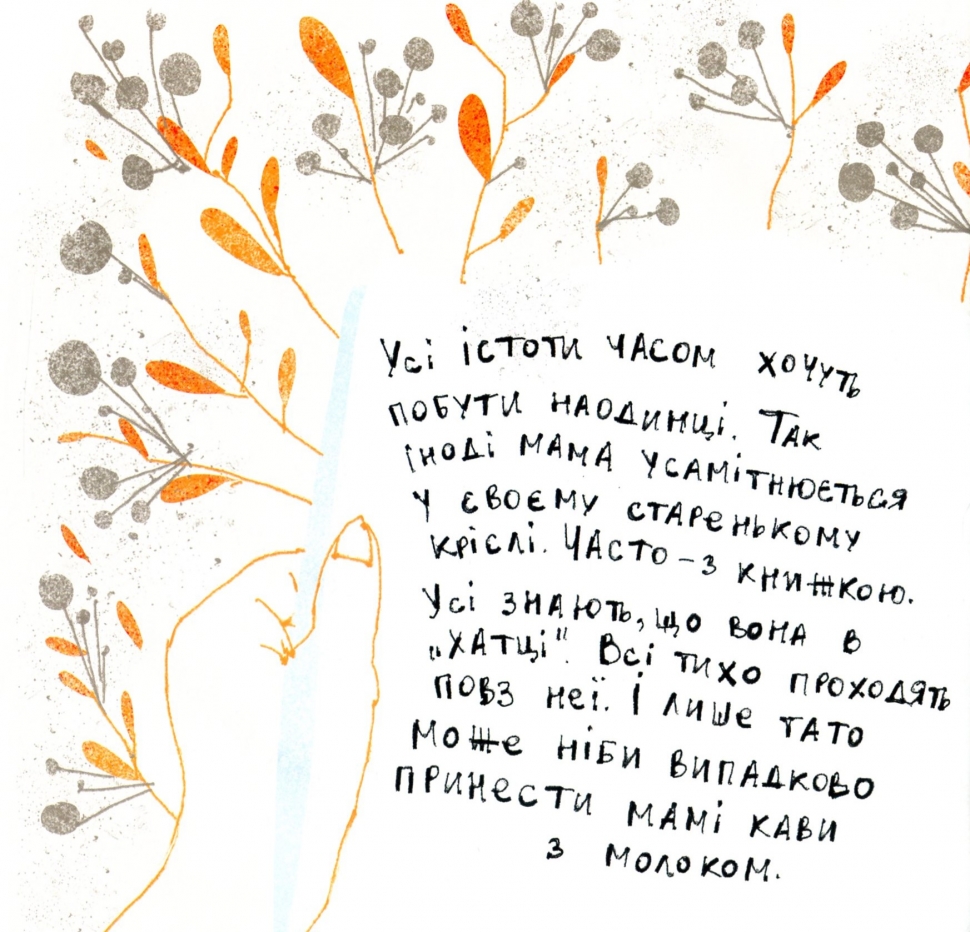 Усі істоти часом хочуть
побути наодинці. Так
іноді мама усамітнюється
у своєму старенькому
кріслі. Часто – з книжкою.
Усі знають, що вона в
„хатці". Всі тихо проходять
повз неї. І лише тато
може ніби випадково
принести мамі кави
з молоком.